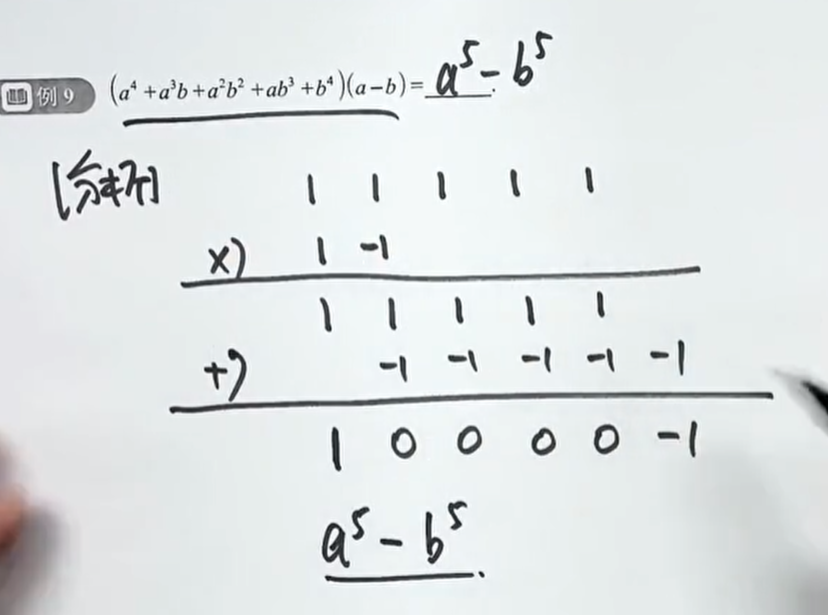 例9 (a⁴+a³b+a²b²+ab³+b⁴)(a-b)= a⁵-b⁵.
[分析] 1 1 1 1 1
×) 1 -1
1 1 1 1 1
+) -1 -1 -1 -1 -1
1 0 0 0 0 -1
a⁵-b⁵.